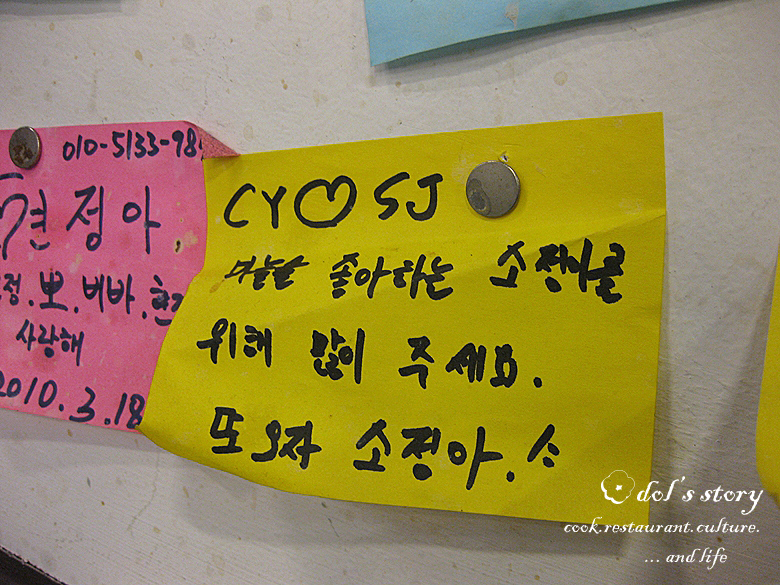 010-5133-98
현정아
정.뽀.버바.현
사랑해
2010.3.18
CY♡SJ
마늘을 좋아하는 소정이를
위해 많이 주세요.
또 오자 소정아.
dol's story
cook.restaurant.culture.
... and life